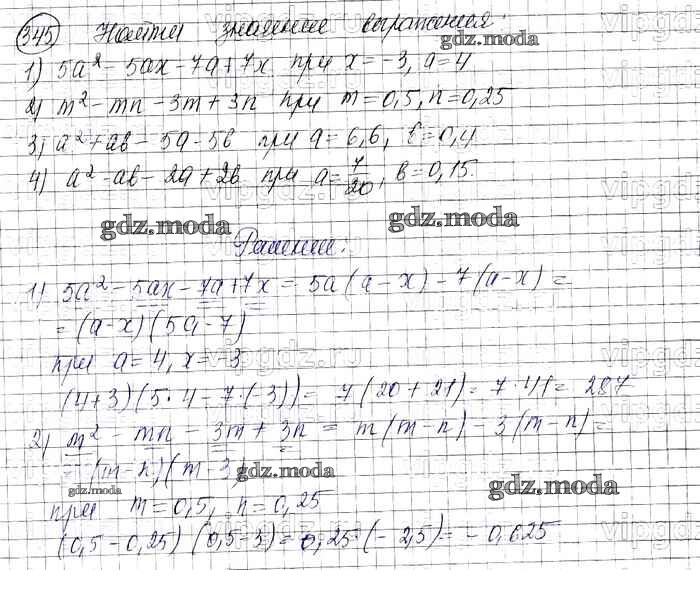 345 Найти значение выражения:
1) 5a² - 5ax - 7a + 7x при x = -3, a = 4
2) m² - mn - 3m + 3n при m = 0,5, n = 0,25
3) a² + aв - 5a - 5в при a = 6,6, в = 0,4
4) a² - aв - 2a + 2в при a = 7/20, в = 0,15.
gdz.moda
gdz.moda gdz.moda
Решение.
1) 5a² - 5ax - 7a + 7x = 5a(a - x) - 7(a - x) =
= (a - x)(5a - 7)
при a = 4, x = -3
(4+3)(5·4 - 7·(-3)) = 7(20 + 21) = 7·41 = 287
2) m² - mn - 3m + 3n = m(m - n) - 3(m - n) =
= (m - n)(m - 3) gdz.moda
gdz.moda gdz.moda
при m = 0,5, n = 0,25
(0,5 - 0,25)(0,5 - 3) = 0,25·(-2,5) = -0,625